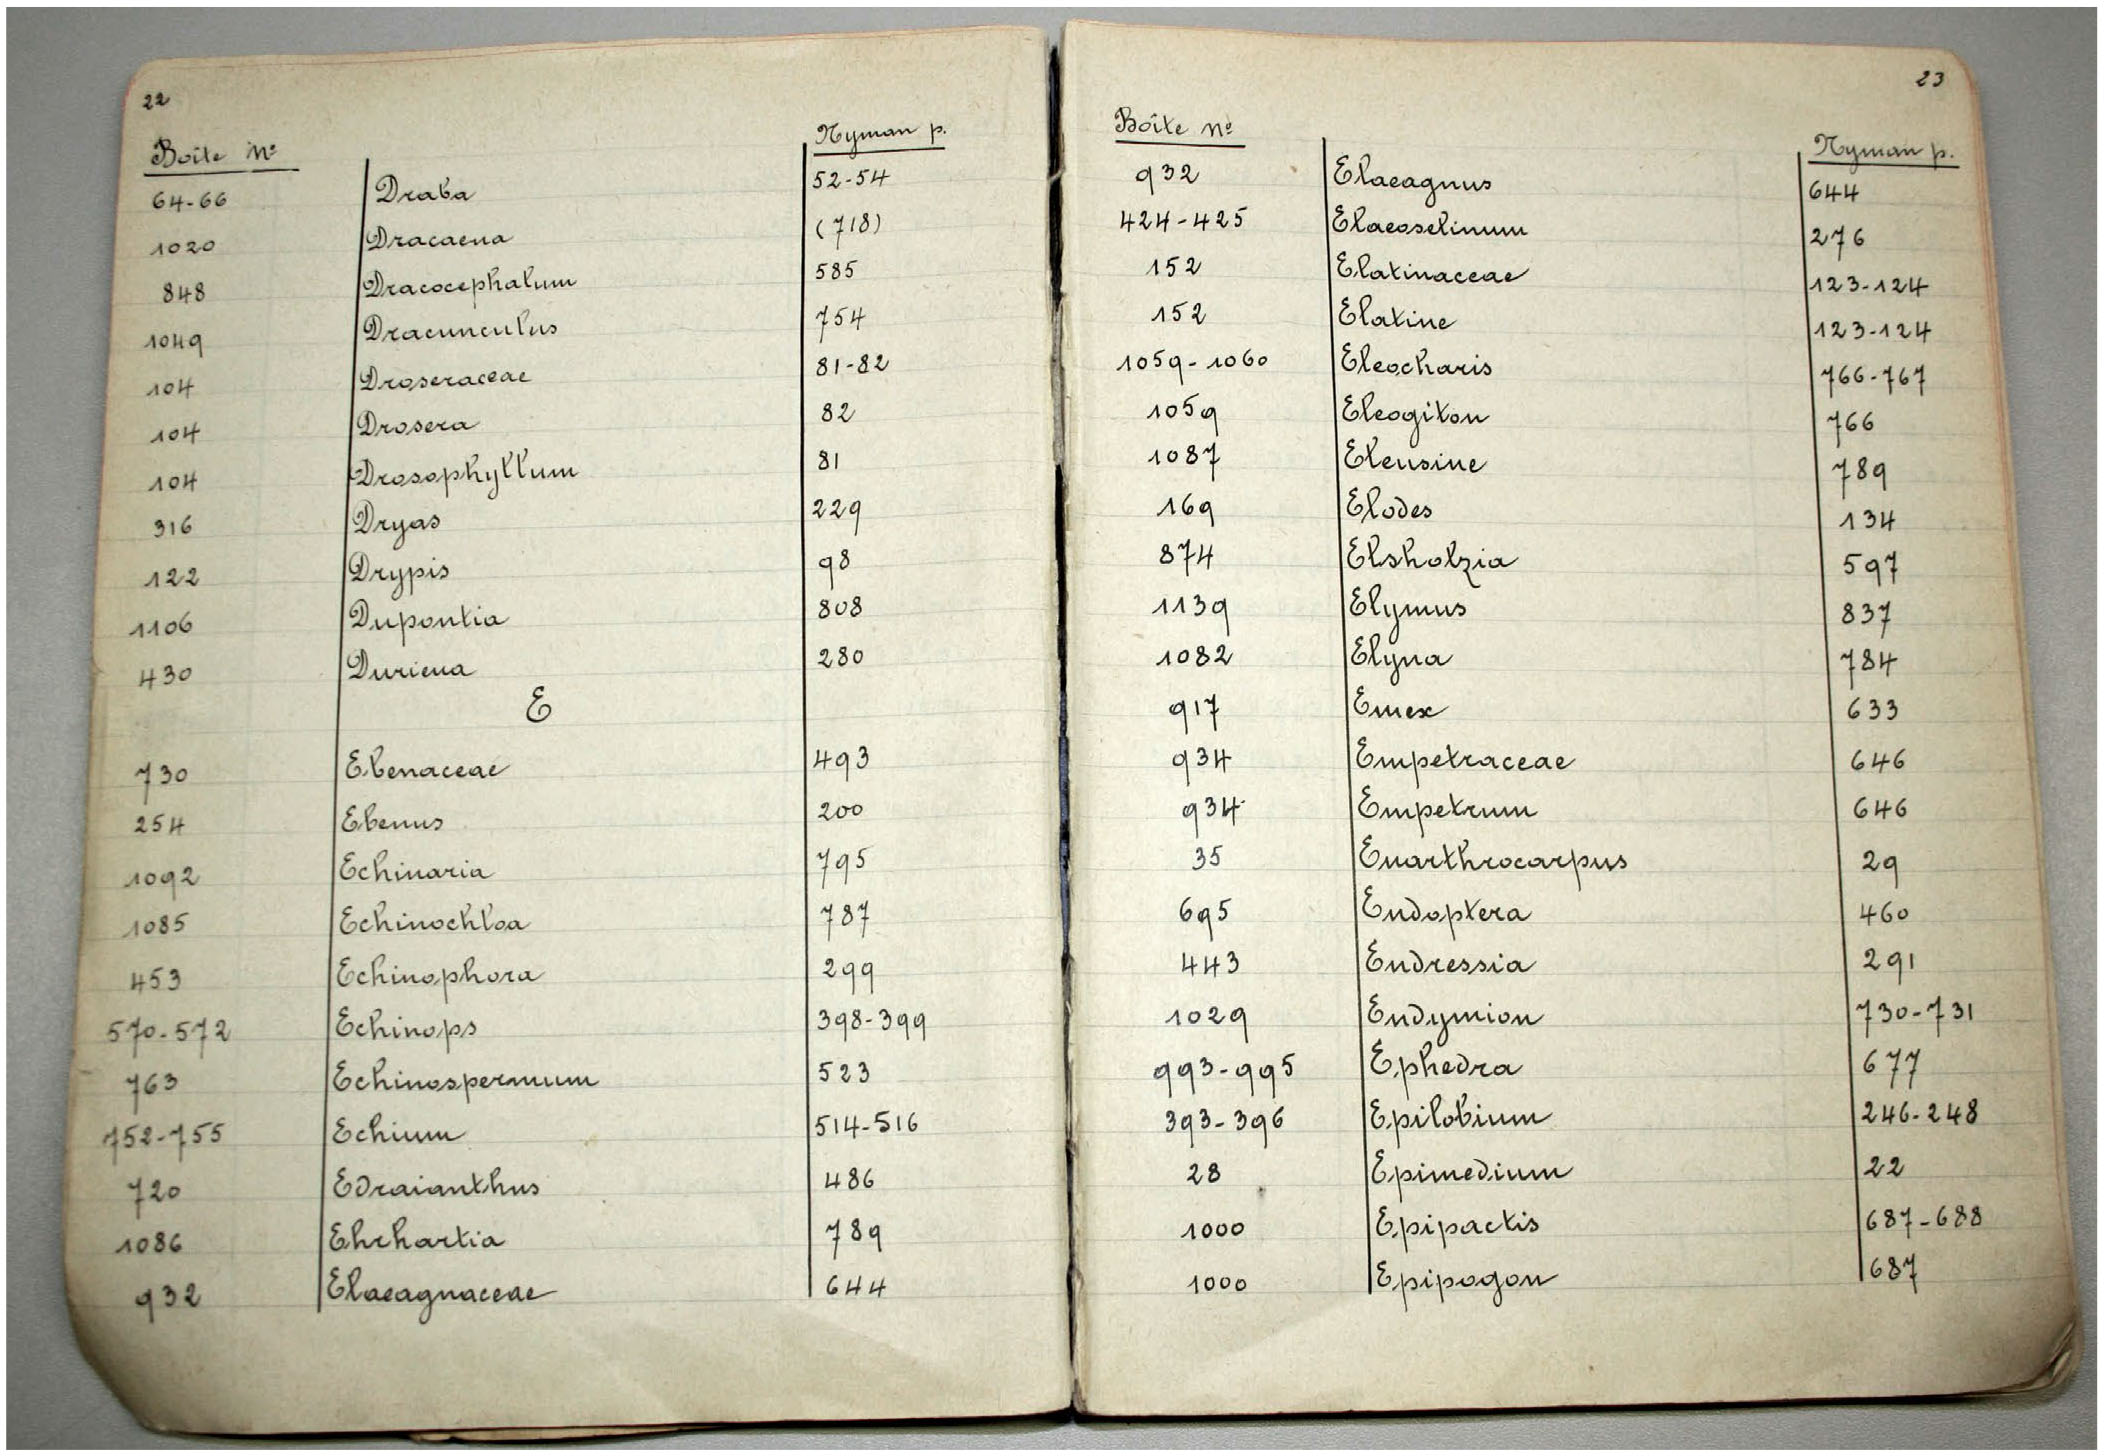 22
Boîte Nº Nyman p.
64-66 Draba 52-54
1020 Dracaena (718)
848 Dracocephalum 585
1049 Dracunculus 754
104 Droseraceae 81-82
104 Drosera 82
104 Drosophyllum 81
316 Dryas 229
122 Drypis 98
1106 Dupontia 808
430 Duriena 280
E
730 Ebenaceae 493
254 Ebenus 200
1092 Echinaria 795
1085 Echinochloa 787
453 Echinophora 299
570-572 Echinops 398-399
763 Echinospermum 523
752-755 Echium 514-516
720 Edraianthus 486
1086 Ehrhartia 789
932 Elaeagnaceae 644
23
Boîte Nº Nyman p.
932 Elaeagnus 644
424-425 Elaeoselinum 276
152 Elatinaceae 123-124
152 Elatine 123-124
1059-1060 Eleocharis 766-767
1059 Eleogiton 766
1087 Eleusine 789
169 Elodes 134
874 Elsholzia 597
1139 Elymus 837
1082 Elyna 784
917 Emex 633
934 Empetraceae 646
934 Empetrum 646
35 Enarthrocarpus 29
695 Endoptera 460
443 Endressia 291
1029 Endymion 730-731
993-995 Ephedra 677
393-396 Epilobium 246-248
28 Epimedium 22
1000 Epipactis 687-688
1000 Epipogon 687